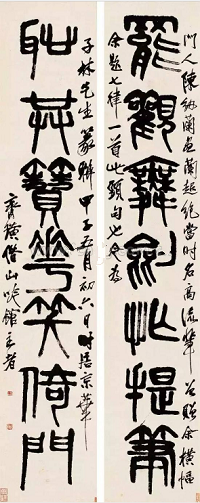 罷觀舞劍忙提筆
門人陳紉蘭畫蘭超絕當時名高流輩曾贈余橫幅
余題七律一首此頸句也又為
耻共簪花笑倚門
子林先生篆聯甲子五月初六日時居京華
齊璜借山吟館主者